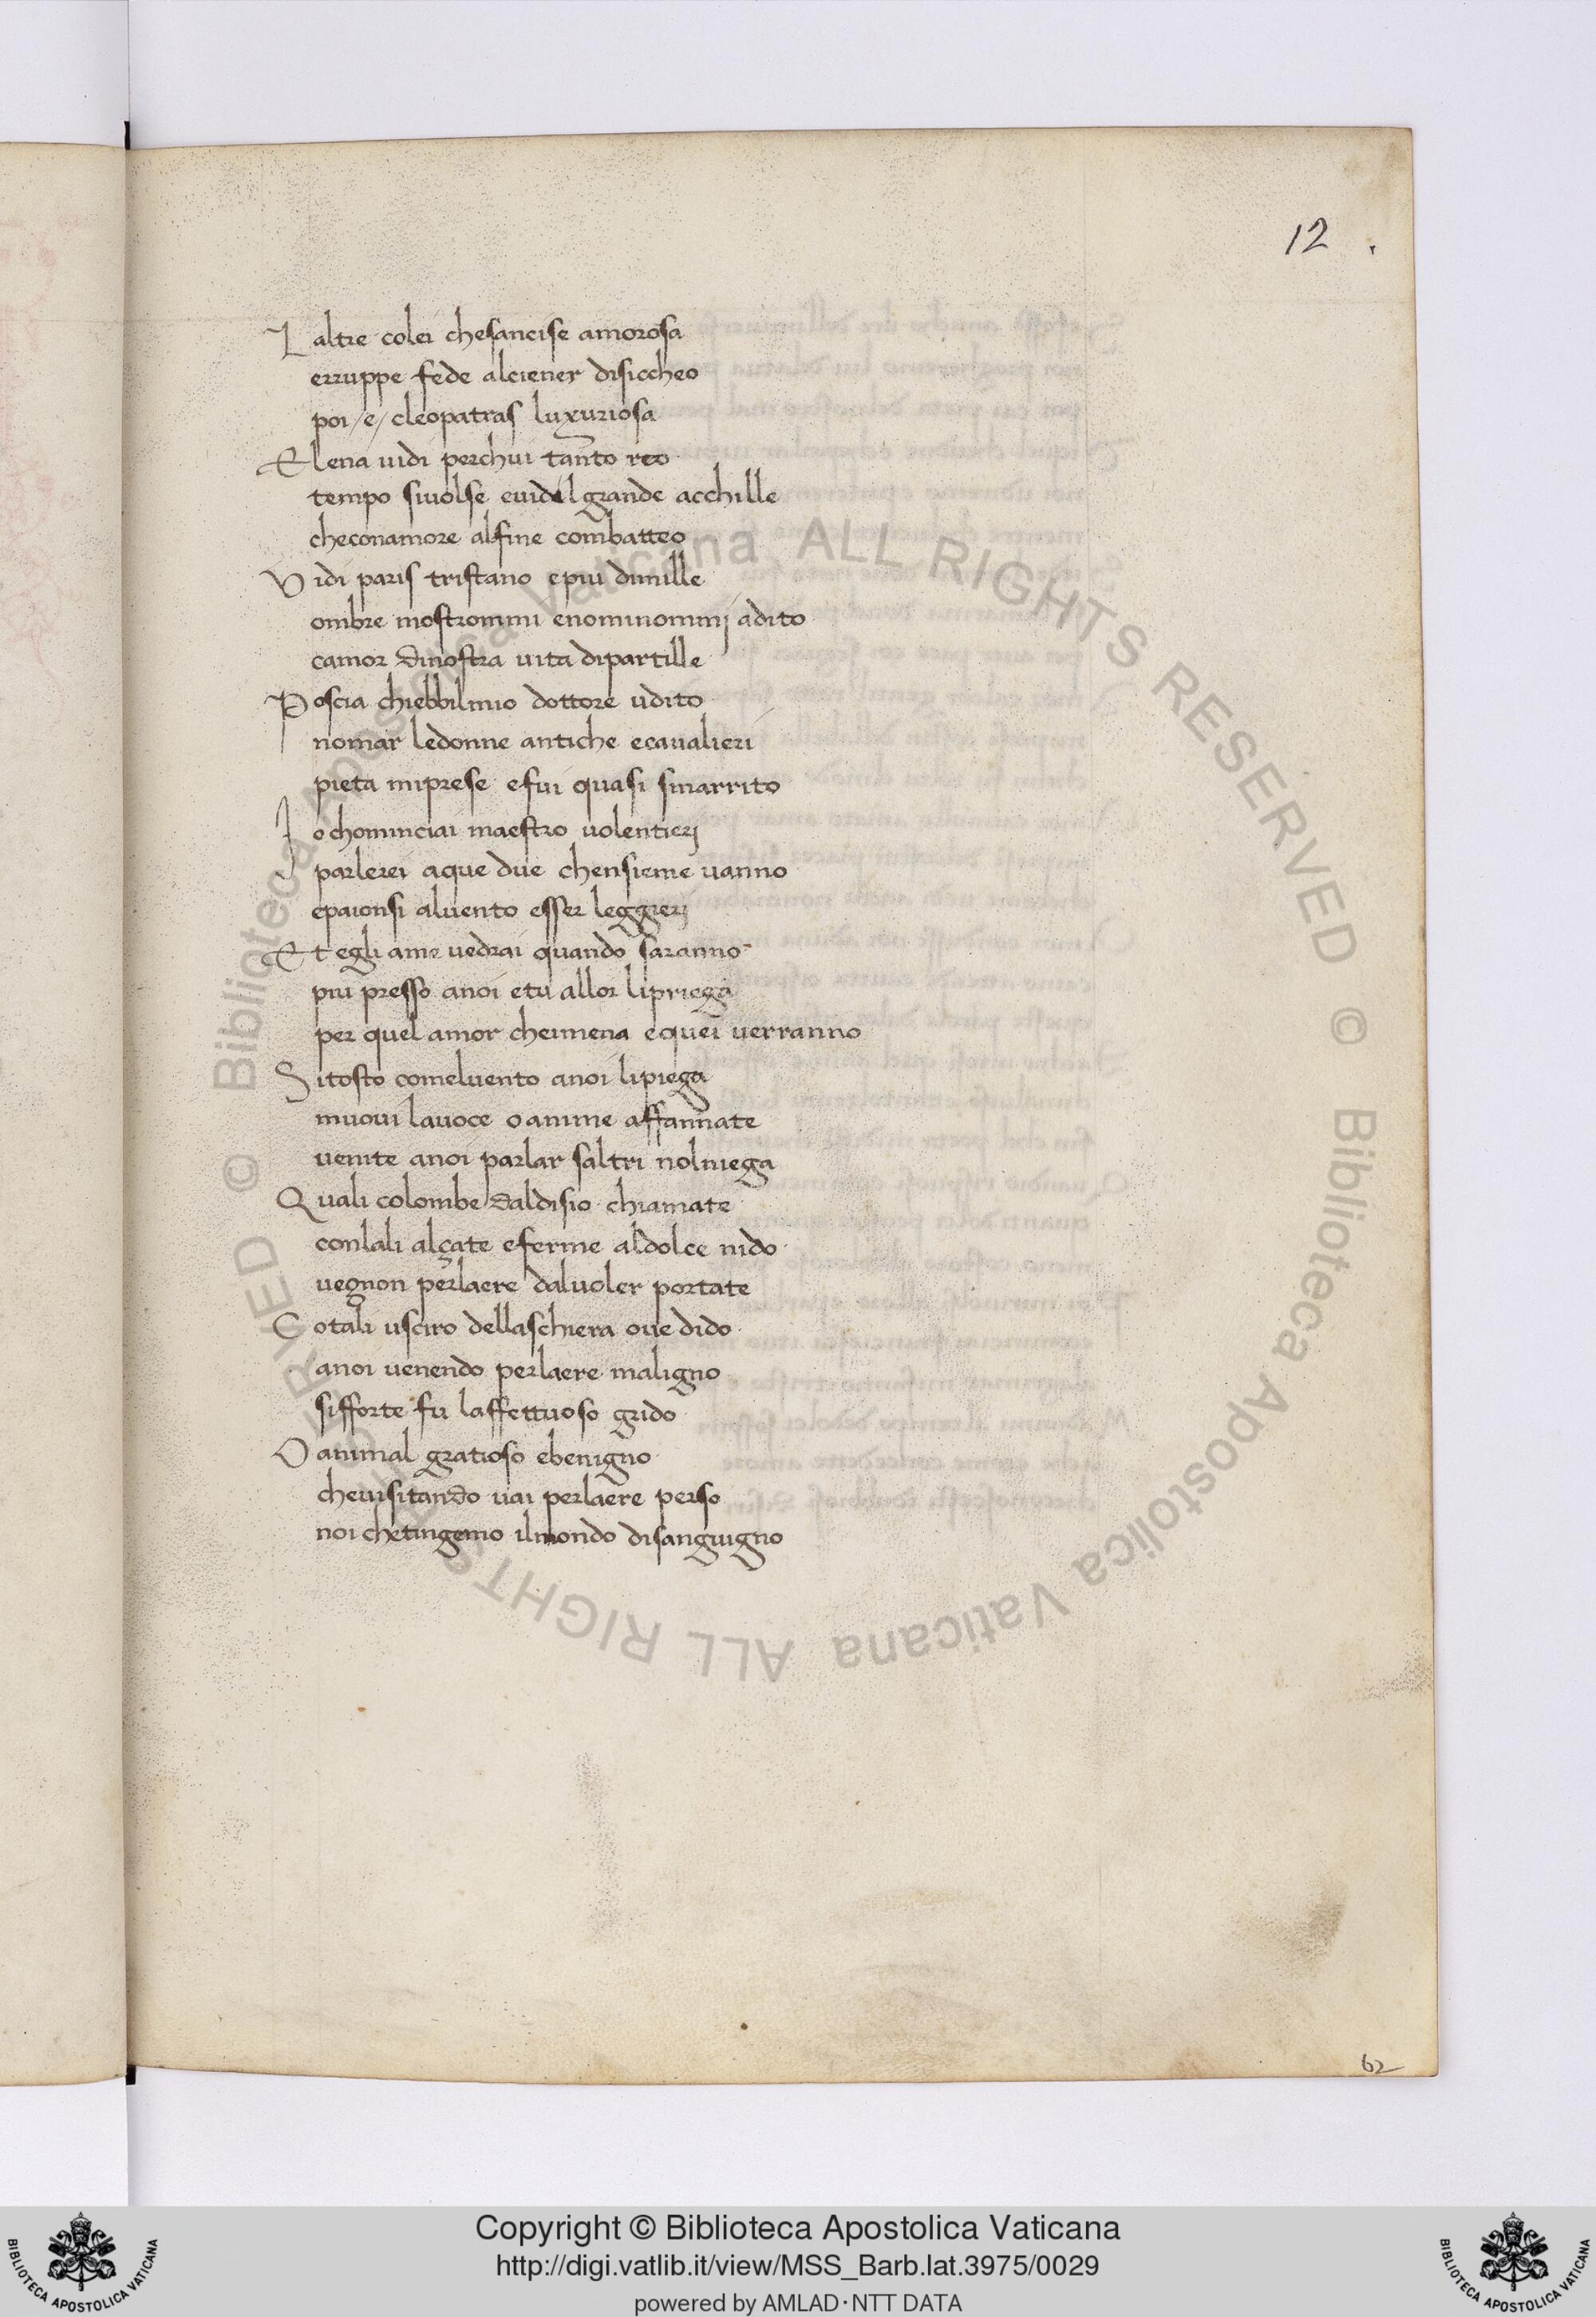 12
L altre colei chesancise amorosa
erruppe fede alciener disiccheo
poi /e/ cleopatras luxuriosa
E lena uidi perchui tanto reo
tempo siuolse euidil grande acchille
checonamore alfine combatteo
V idi paris tristano epiu dimille
ombre mostrommi enominommj adito
camor dinostra uita dipartille
P oscia chiebbilmio dottore udito
nomar ledonne antiche ecaualieri
pieta miprese efui quasi smarrito
I o chominciai maestro uolentierj
parlerei aque due chensieme uanno
epaionsi aluento esser leggierj
E t egli ame uedrai quando saranno
piu presso anoi etu allor lipriega
per quel amor cheimena equei uerranno
S itosto comeluento anoi lipiega
muoui lauoce o anime affannate
uenite anoi parlar saltri nolniega
Q uali colombe daldisio chiamate
conlali alçate eferme aldolce nido
uegnon perlaere daluoler portate
C otali usciro dellaschiera oue dido
anoi uenendo perlaere maligno
sifforte fu laffettuoso grido
O animal gratioso ebenigno
cheuisitando uai perlaere perso
noi chetingemo ilmondo disanguigno
62
© Biblioteca Apostolica Vaticana ALL RIGHTS RESERVED © Biblioteca Apostolica Vaticana ALL RIGHTS RESERVED
Copyright © Biblioteca Apostolica Vaticana
http://digi.vatlib.it/view/MSS_Barb.lat.3975/0029
powered by AMLAD·NTT DATA
BIBLIOTECA APOSTOLICA VATICANA
BIBLIOTECA APOSTOLICA VATICANA